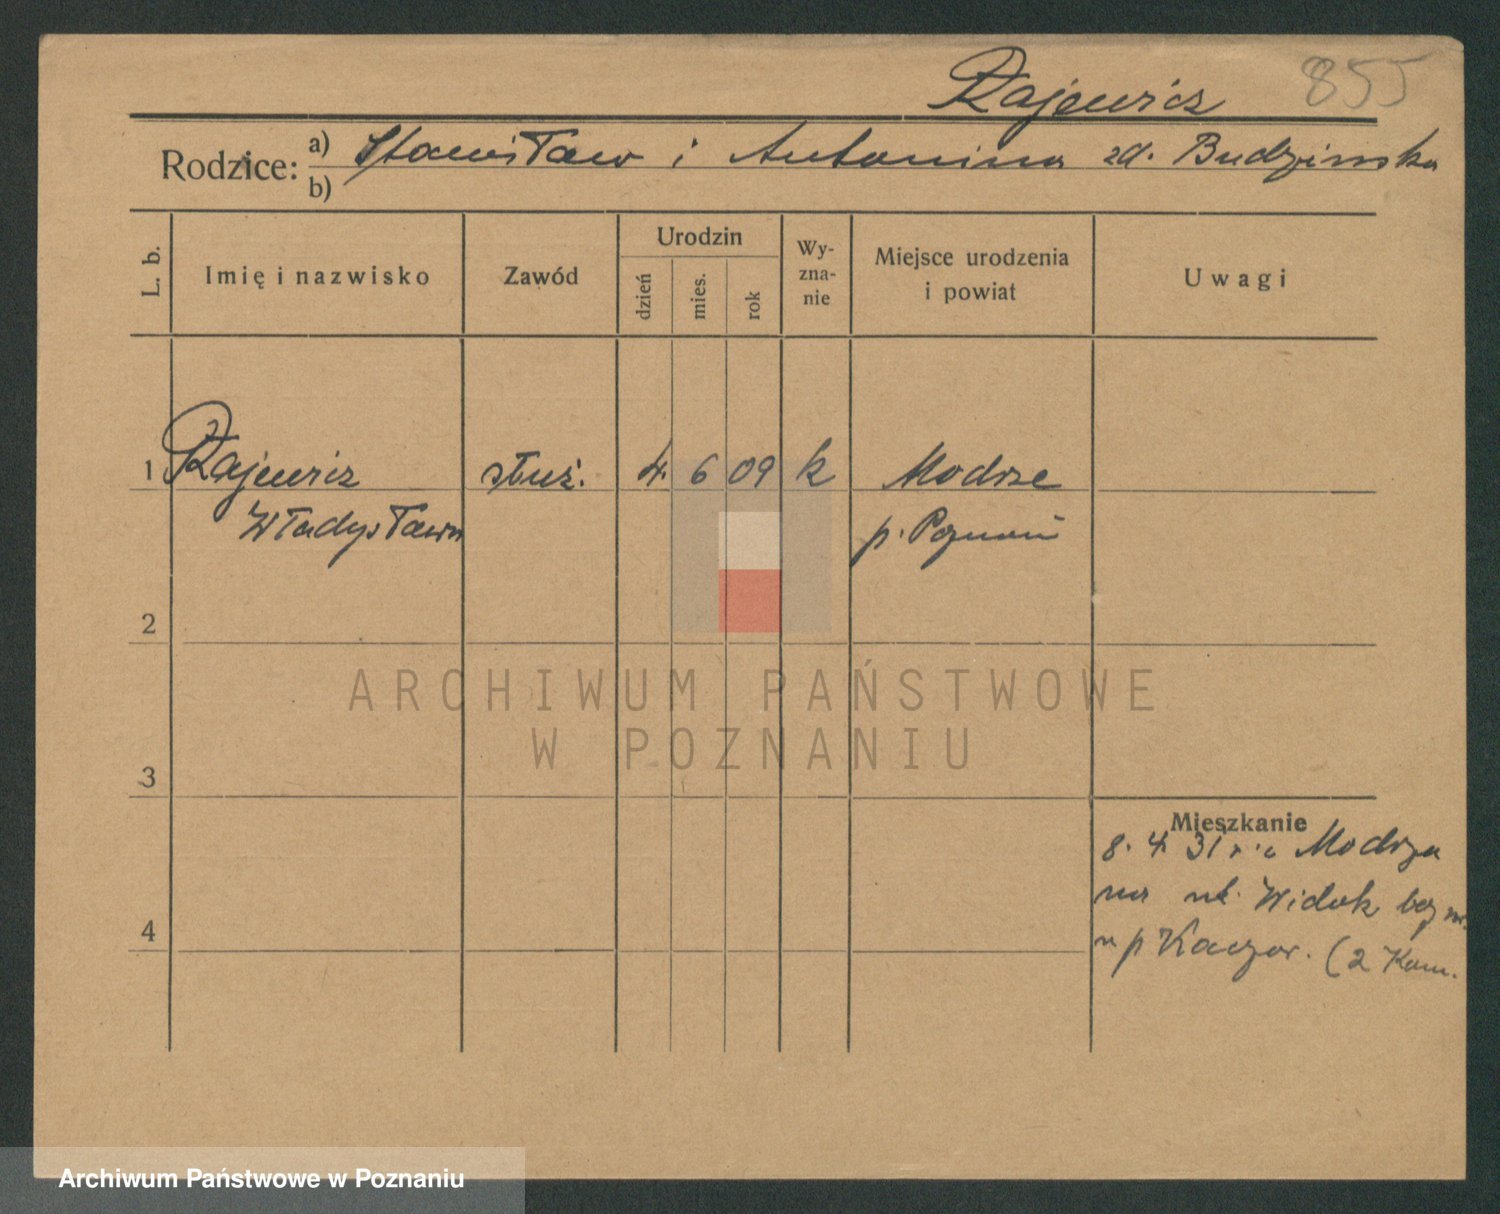 Rajewicz 855
Rodzice: a) Stanisław i Antonina zd. Budzińska
b)
L. b. Imię i nazwisko Zawód Urodzin dzień mies. rok Wyznanie Miejsce urodzenia i powiat Uwagi
1 Rajewicz służ. 4. 6 09 k Modrze
Władysława p. Poznań
2
ARCHIWUM PAŃSTWOWE
W POZNANIU
3
Mieszkanie
8. 4 31 r. z Modrza
na ul. Widok bez nr.
4 u p Kaczor. (2 Kom.
Archiwum Państwowe w Poznaniu